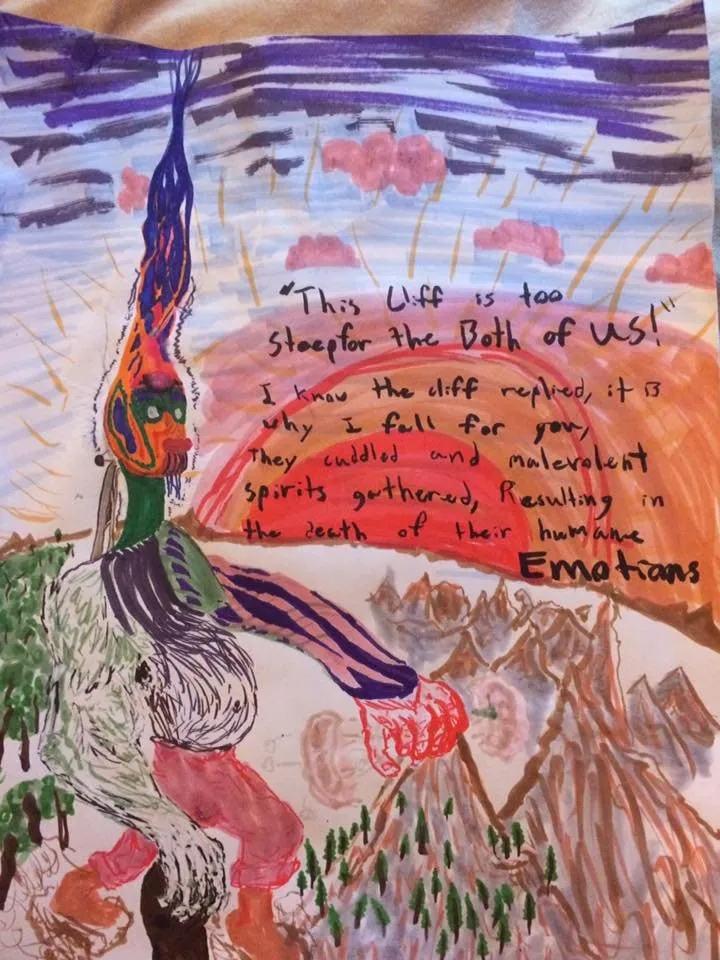 "This Cliff is too
steep for the Both of US!"
I know the cliff replied, it is
why I fell for you,
They cuddled and malevolent
spirits gathered, Resulting in
the death of their humane
Emotians